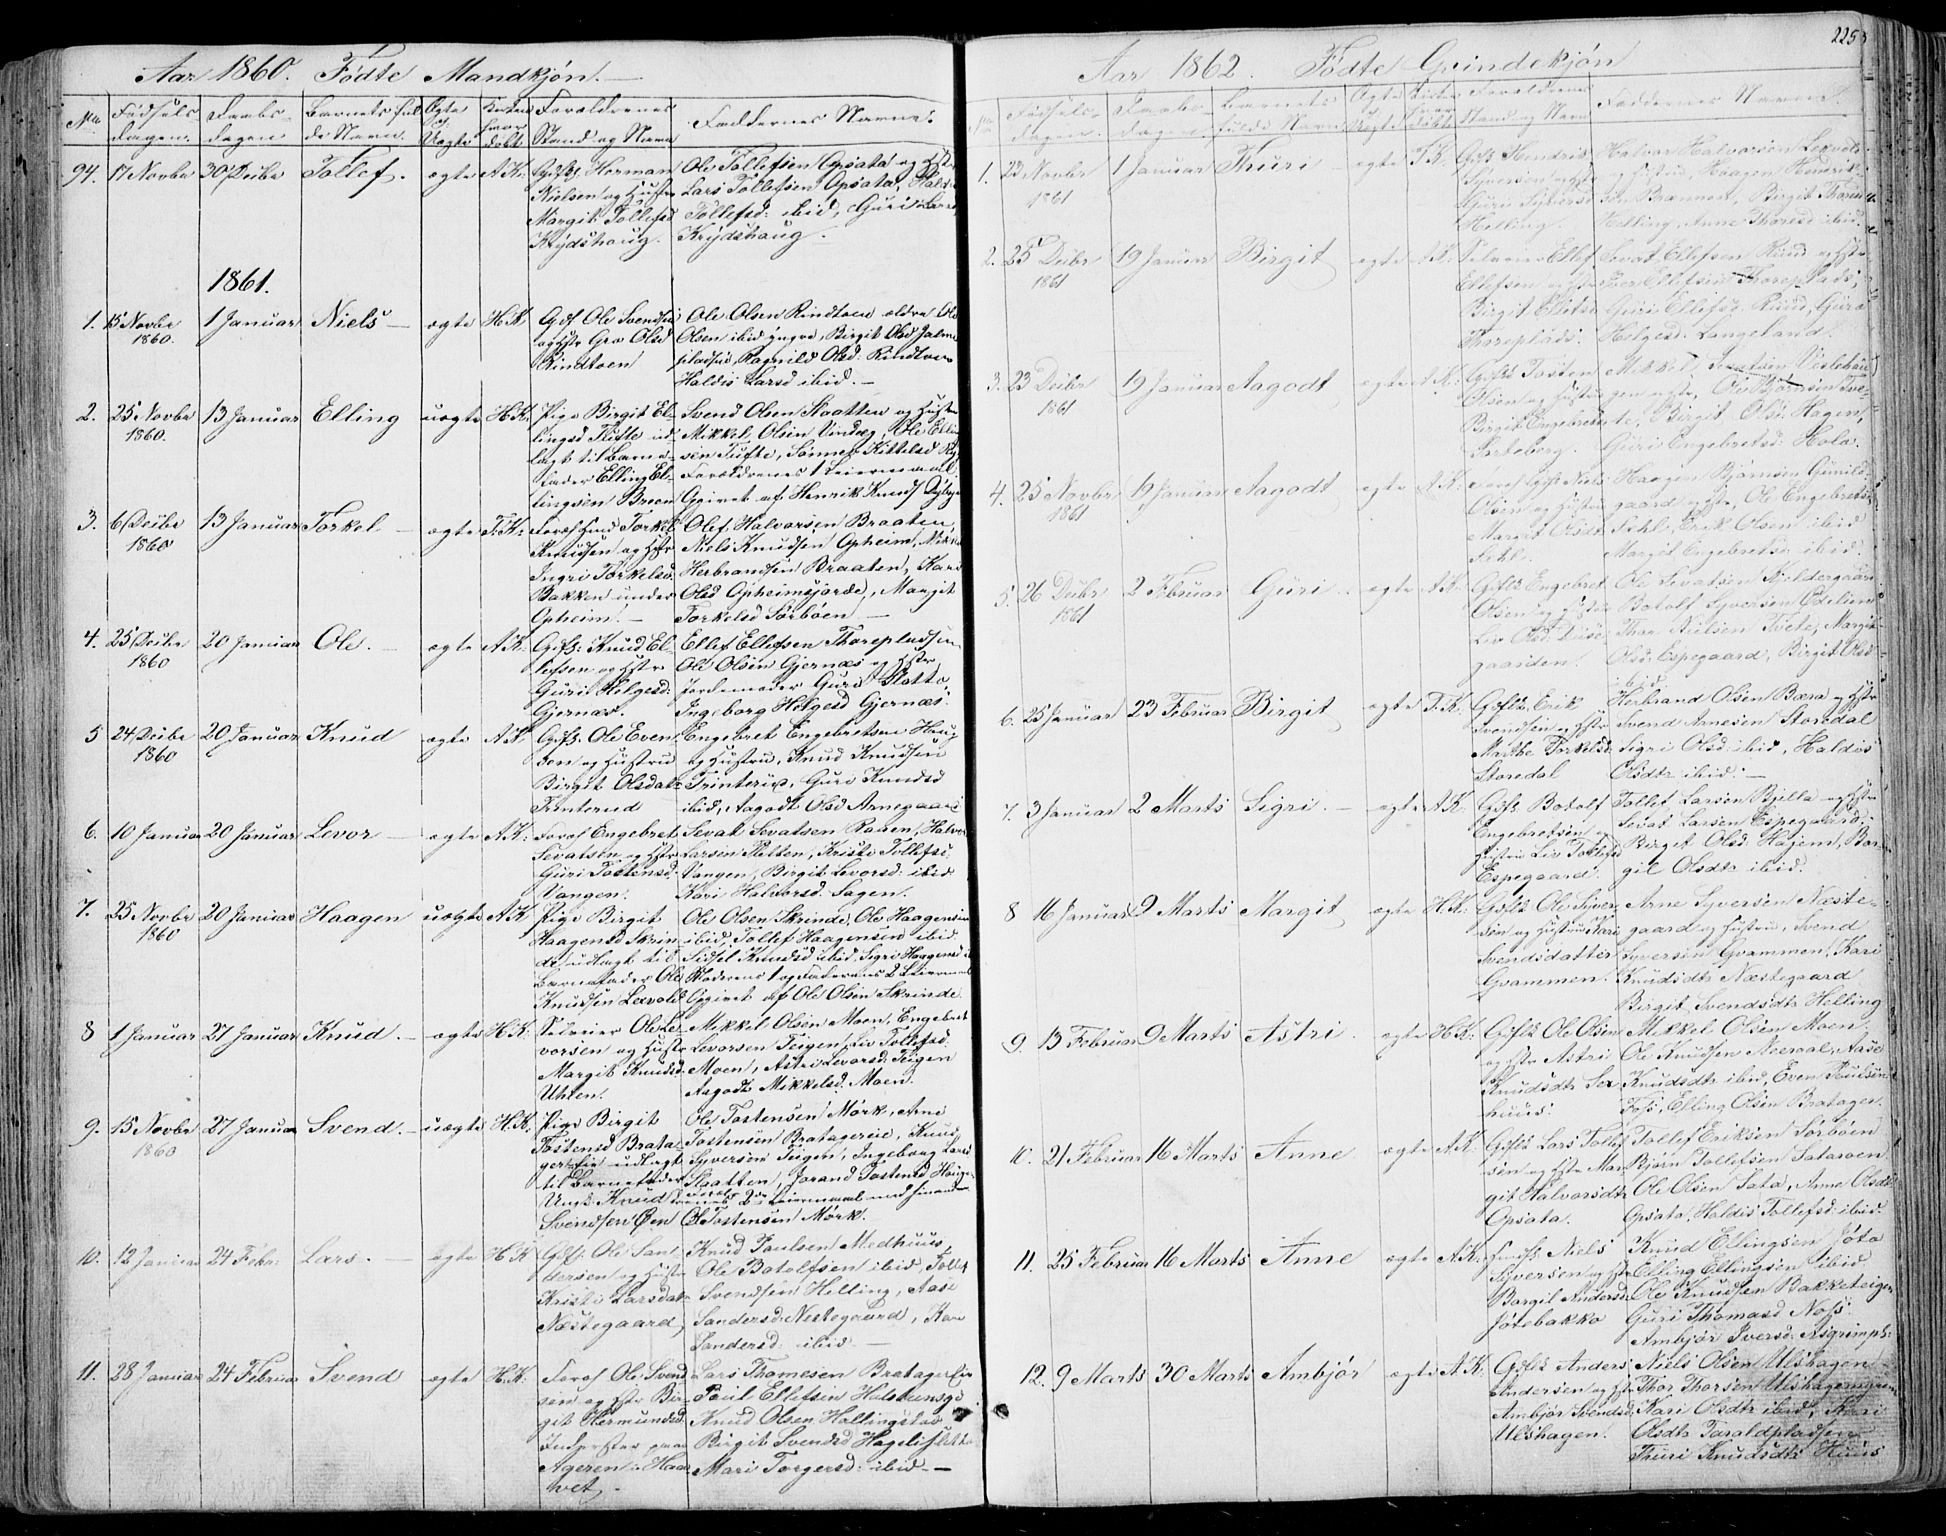 Aar 1860. Födte Mandkjön.
No.
Födsels dagen.
Daabs dagen
Barnets fulde Navn.
Ægte og Uægte
Kirken hvor döbt
Forældrenes Stand og Navn
Faddernes Navne.
94. 17 Novbr 30 Decbr Tollef. ægte A.K:
Gdfs: Herman
Nielsen og Hstr
Margit Tollefsd
Krydshaug.
Ole Tollefsen Opsata og Hstr
Lars Tollefsen Opsata,
Tollefsd: ibid, Guri Larsd
Krydshaug.
1861.
1. 15 Novbr 1860. 1 Januar Niels ægte H.K
Gdf Ole Svendsen
og Hstr Gro Olsd
Rindtoen
Ole Olsen Rindtoen ældre Ole
Olsen ibid yngre, Birgit Olsd
Ragnild Olsd. Rindtoen
Haldis Larsd ibid.
2. 25 Novbr 1860. 13 Januar Elling uægte H.K:
Pige Birgit El-
lingsd Tufte ud-
lagt til Barne-
fader Elling El-
lingsen Broen
Svend Olsen Slaatten og Hustr
Mikkel Olsen
Ellingsen Tufte, Kittelsd
Forældrenes 1 Leiermaal
Opgivet af Henrik Knuds
3. 6 Decbr 1860 13 Januar Torkel ægte T.K:
Torkel
Knudsen og Hstr
Ingri Torkelsd.
Bakken under
Opheim.
Olef Halvorsen Braaten,
Niels Knudsen Opheim,
Herbrandsen Braaten, Kari
Olsd Opheimsjorde, Margit
Torkelsd Sørbøen
4. 25 Decbr 1860 20 Januar Ole. ægte A.K:
Gdfs: Knud El-
lefsen og Hstr
Guri Helgesd:
Gjernæs.
Ellef Ellefsen Thorepladsen
Ole Olsen Gjernæs og Hstr
Jordemoder Guri Slotte,
Ingeborg Helgesd Gjernæs.
5 24 Decbr 1860 20 Januar Knud ægte A.K
Gdfs: Ole Even
sen og Hustru
Birgit Olsdatr
Trinterud
Engebret Engebretsen Haug
og Hustru, Knud Knudsen
Trinterud, Guri Knudsd
ibid, Aagodt Olsd Arnegaard
6. 10 Januar 20 Januar Levor ægte A.K:
Engebret
Sevatsen og Hstr
Guri Tostensd
Vangen.
Sevat Sevatsen Raaen, Halvor
Larsen Sletten, Kristi Tollefsd
Vangen, Birgit Levorsd: ibid
Kari Halvorsd Sagen.
7. 25 Novbr 1860 20 Januar Haagen uægte A.K
Pige Birgit
Haagensd Skrin
de, udlagt til
Barnefader Ole
Knudsen Lexvold
Ole Olsen Skrinde, Ole Haagensen
ibid, Tollef Haagensen ibid
Sidsel Knudsd ibid, Sigri Haagensd
Moderens 1 og Faderens 2 Leiermaal
Opgivet af Ole Olsen Skrinde
8 1 Januar 27 Januar Knud. ægte H.K:
Selveier Ole Le
vorsen og Hustr
Margit Knudsd.
Uhlen.
Mikkel Olsen Moen, Engebret
Levorsen Teigen, Liv Tollefsd.
Moen, Astri Levorsd: Teigen
Aagodt Mikkelsd. Moen.
9. 15 Novbr 1860 27 Januar Svend. uægte H.K:
Pige Birgit
Tostensd Brata-
gereie udlagt
til Barnefader
Ungk. Knud
Svendsen Øen
Ole Tostensen Mørk, Arne
Tostensen Bratagereie, Knud
Syversen Teigen, Ingeborg Larsd
Slaatten, Jorand Tostensd
Leiermaal
Ole Tostensen Mørk.
10. 12 Januar 24 Febr: Lars. ægte H.K
Gdfs: Ole San-
dersen og Hustr
Kristi Larsdatr
Næstegaard
Knud Paulsen Medhuus
Ole Botolfsen ibid, Tollef
Svendsen Helling, Aase
Sandersd: Nestegaard, Kari
Sandersd: ibid
11. 28 Januar 24 Februar Svend ægte H.K:
Ole Svend
sen og Hstr Bir-
git Hermundsd.
Inderster paa
Ageren i
Lars Thomesen Bratagereie
Paul Ellefsen
Knud Olsen Hallingstad
Birgit Svendsd Hagelisletten
Mari Torgersd: ibid
Aar 1862. Födte Qvindekjön
225
No
Födsels-dagen.
Daabs-dagen
Barnets fulde Navn
Forældrenes Stand og Navn
Faddernes Navne
1. 23 Novbr 1861 1 Januar Thuri ægte T.K.
Gdfs Hendrik
Syversen og Hstr
Guri Syversd
Helling.
Halvor Halvorsen Lexvold
og Hustru, Haagen Hendrik-
sen Brænnen, Birgit Thoresd
Helling, Anne Thoresd ibid.
2. 25 Decbr 1861 19 Januar Birgit ægte A.K:
Selveier Ellef
Ellefsen og Hstr
Birgit Eilifsd
Thoreplads.
Sevat Ellefsen Ruud og Hstr
Iver Ellefsen Thoreplads,
Guri Ellefsd Ruud, Guro
Helgesd. Langeland.
3. 23 Decbr 1861 19 Januar Aagodt ægte A.K:
Gdfs Tosten
Olsen og Hustru
Birgit Engebretsd
Mikkel
Ole Bjørnsen Tve-
te, Birgit Olsd: Hagen,
Guri Engebretsd: Hola.
4. 25 Novbr 1861 19 Januar Aagodt ægte A.K:
Niels
Olsen og Hustru
Margit Olsdtr
Sehl.
Haagen Bjørnsen Gunild-
gaard og Hstr, Ole Engebretsen
Sehl, Erik Olsen ibid
Margit Engebretsd: ibid.
5. 26 Decbr 1861 2 Februar Guri ægte A.K:
Gdfs Engebret
Olsen og Hustru
Liv Olsd.
gaarden.
Ole Sevatsen Kjeldergaard
Botolf Syversen Ødelien
Thor Nielsen Tvete, Margit
Olsd: Espegaard, Birgit Olsd
ibid.
6. 25 Januar 23 Februar Birgit ægte T.K:
Gdfs Erik
Svendsen og Hstr
Marthe Torkelsd:
Storedal
Herbrand Olsen Bæra og Hstr
Svend Arnesen Storedal
Sigri Olsd: ibid, Haldis
Olsdtr ibid.
7. 3 Januar 2 Marts Sigri. ægte A.K:
Gdfs Botolf
Engebretsen og
Hustru Liv Tollefsd
Espegaard.
Tollef Larsen Bjella og Hstr
Sevat Larsen Espegaard,
Birgit Olsd: Hagem, Bar-
gil Olsdtr ibid.
8 16 Januar 9 Marts Margit ægte H.K:
Gdfs Ole Siver
sen og Hustru Kari
Svendsdatter
Gvammen.
Arne Syversen Næste-
gaard og Hustru, Svend
Syversen Gvammen, Kari
Knudsdtr Næstegaard
Birgit Svendsdtr Helling
9. 13 Februar 9 Marts Astri. ægte H.K:
Gdfs Ole Olsen
og Hstr Astri
Knudsdtr Ser
huus.
Mikkel Olsen Moen.
Ole Knudsen Neeraal, Aase
Knudsdtr ibid, Even Paulsen
Foss, Elling Olsen Bratager.
10. 21 Februar 16 Marts Anne ægte A.K:
Gdfs Lars Tollef
sen og Hstr Mar
git Halvorsdtr
Opsata.
Tollef Eriksen Sørbøen
Bjørn Tollefsen Satasoen
Ole Olsen Sata, Anne Olsdtr
Opsata, Haldis Tollefsd: ibid.
11. 25 Februar 16 Marts Anne ægte A.K:
Niels
Syversen og Hstr
Bargil Andersd:
Jötebakko
Knud Ellingsen Jöta
Elling Ellingsen ibid
Ole Knudsen Bakketeigen
Guri Thomasd Noss
Ambjør Iversd: Asgrimpl:
12. 9 Marts 30 Marts Ambjör ægte A.K:
Gdfs Anders
Andersen og Hstr
Ambjør Svendsd:
Ulshagen.
Niels Olsen Ulshagen
Thor Thorsen Ulshagen
Kari Olsdtr ibid, Kari
Olsdtr Taraldpladsen
Thuri Knudsdtr Huus